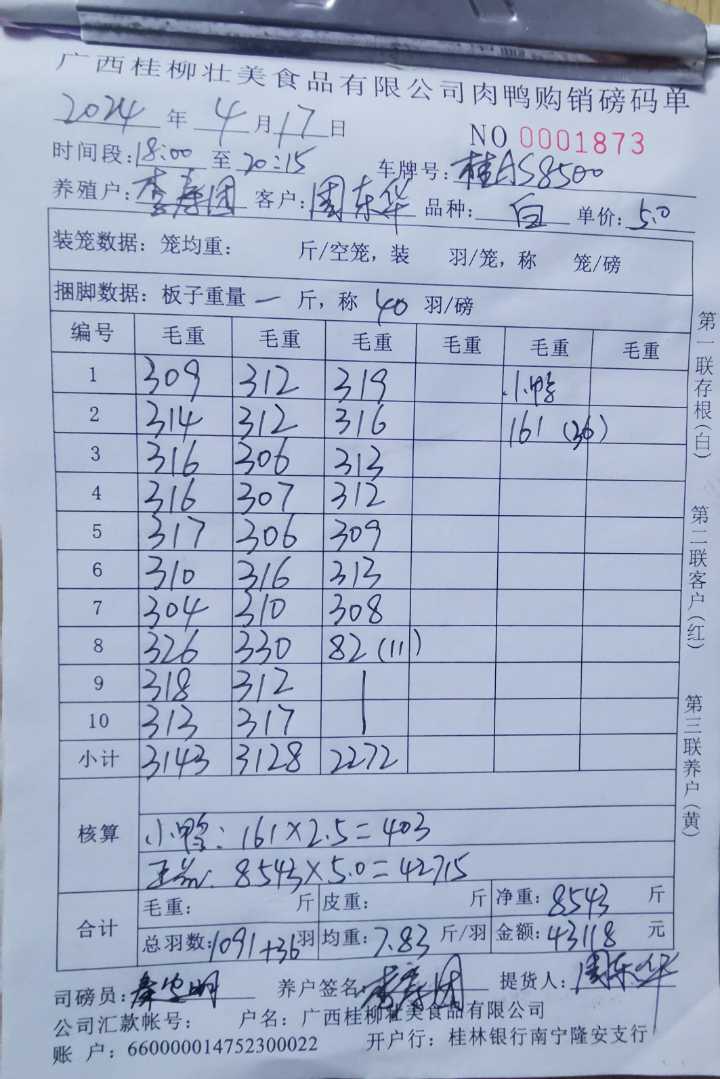 广西桂柳壮美食品有限公司肉鸭购销磅码单
2024 年 4 月 17 日 NO 0001873
时间段: 18:00 至 20:15 车牌号: 桂AS8500
养殖户: 李寿团 客户: 周东华 品种: 白 单价: 5.0
装笼数据: 笼均重: 斤/空笼, 装 羽/笼, 称 笼/磅
捆脚数据: 板子重量 一 斤, 称 40 羽/磅
编号 毛重 毛重 毛重 毛重 毛重 毛重
1 309 312 319 小鸭
2 314 312 316 161 (36)
3 316 306 313
4 316 307 312
5 317 306 309
6 310 316 313
7 304 310 308
8 326 330 82 (11)
9 318 312
10 313 317
小计 3143 3128 2272
核算
小鸭: 161×2.5=403
8543×5.0=42715
合计 毛重: 斤 皮重: 斤 净重: 8543 斤
总羽数: 1091+36 羽 均重: 7.83 斤/羽 金额: 43118 元
司磅员: 养户签名: 李寿团 提货人: 周东华
公司汇款帐号: 户名: 广西桂柳壮美食品有限公司
账 户: 660000014752300022 开户行: 桂林银行南宁隆安支行
第一联存根(白)
第二联客户(红)
第三联养户(黄)